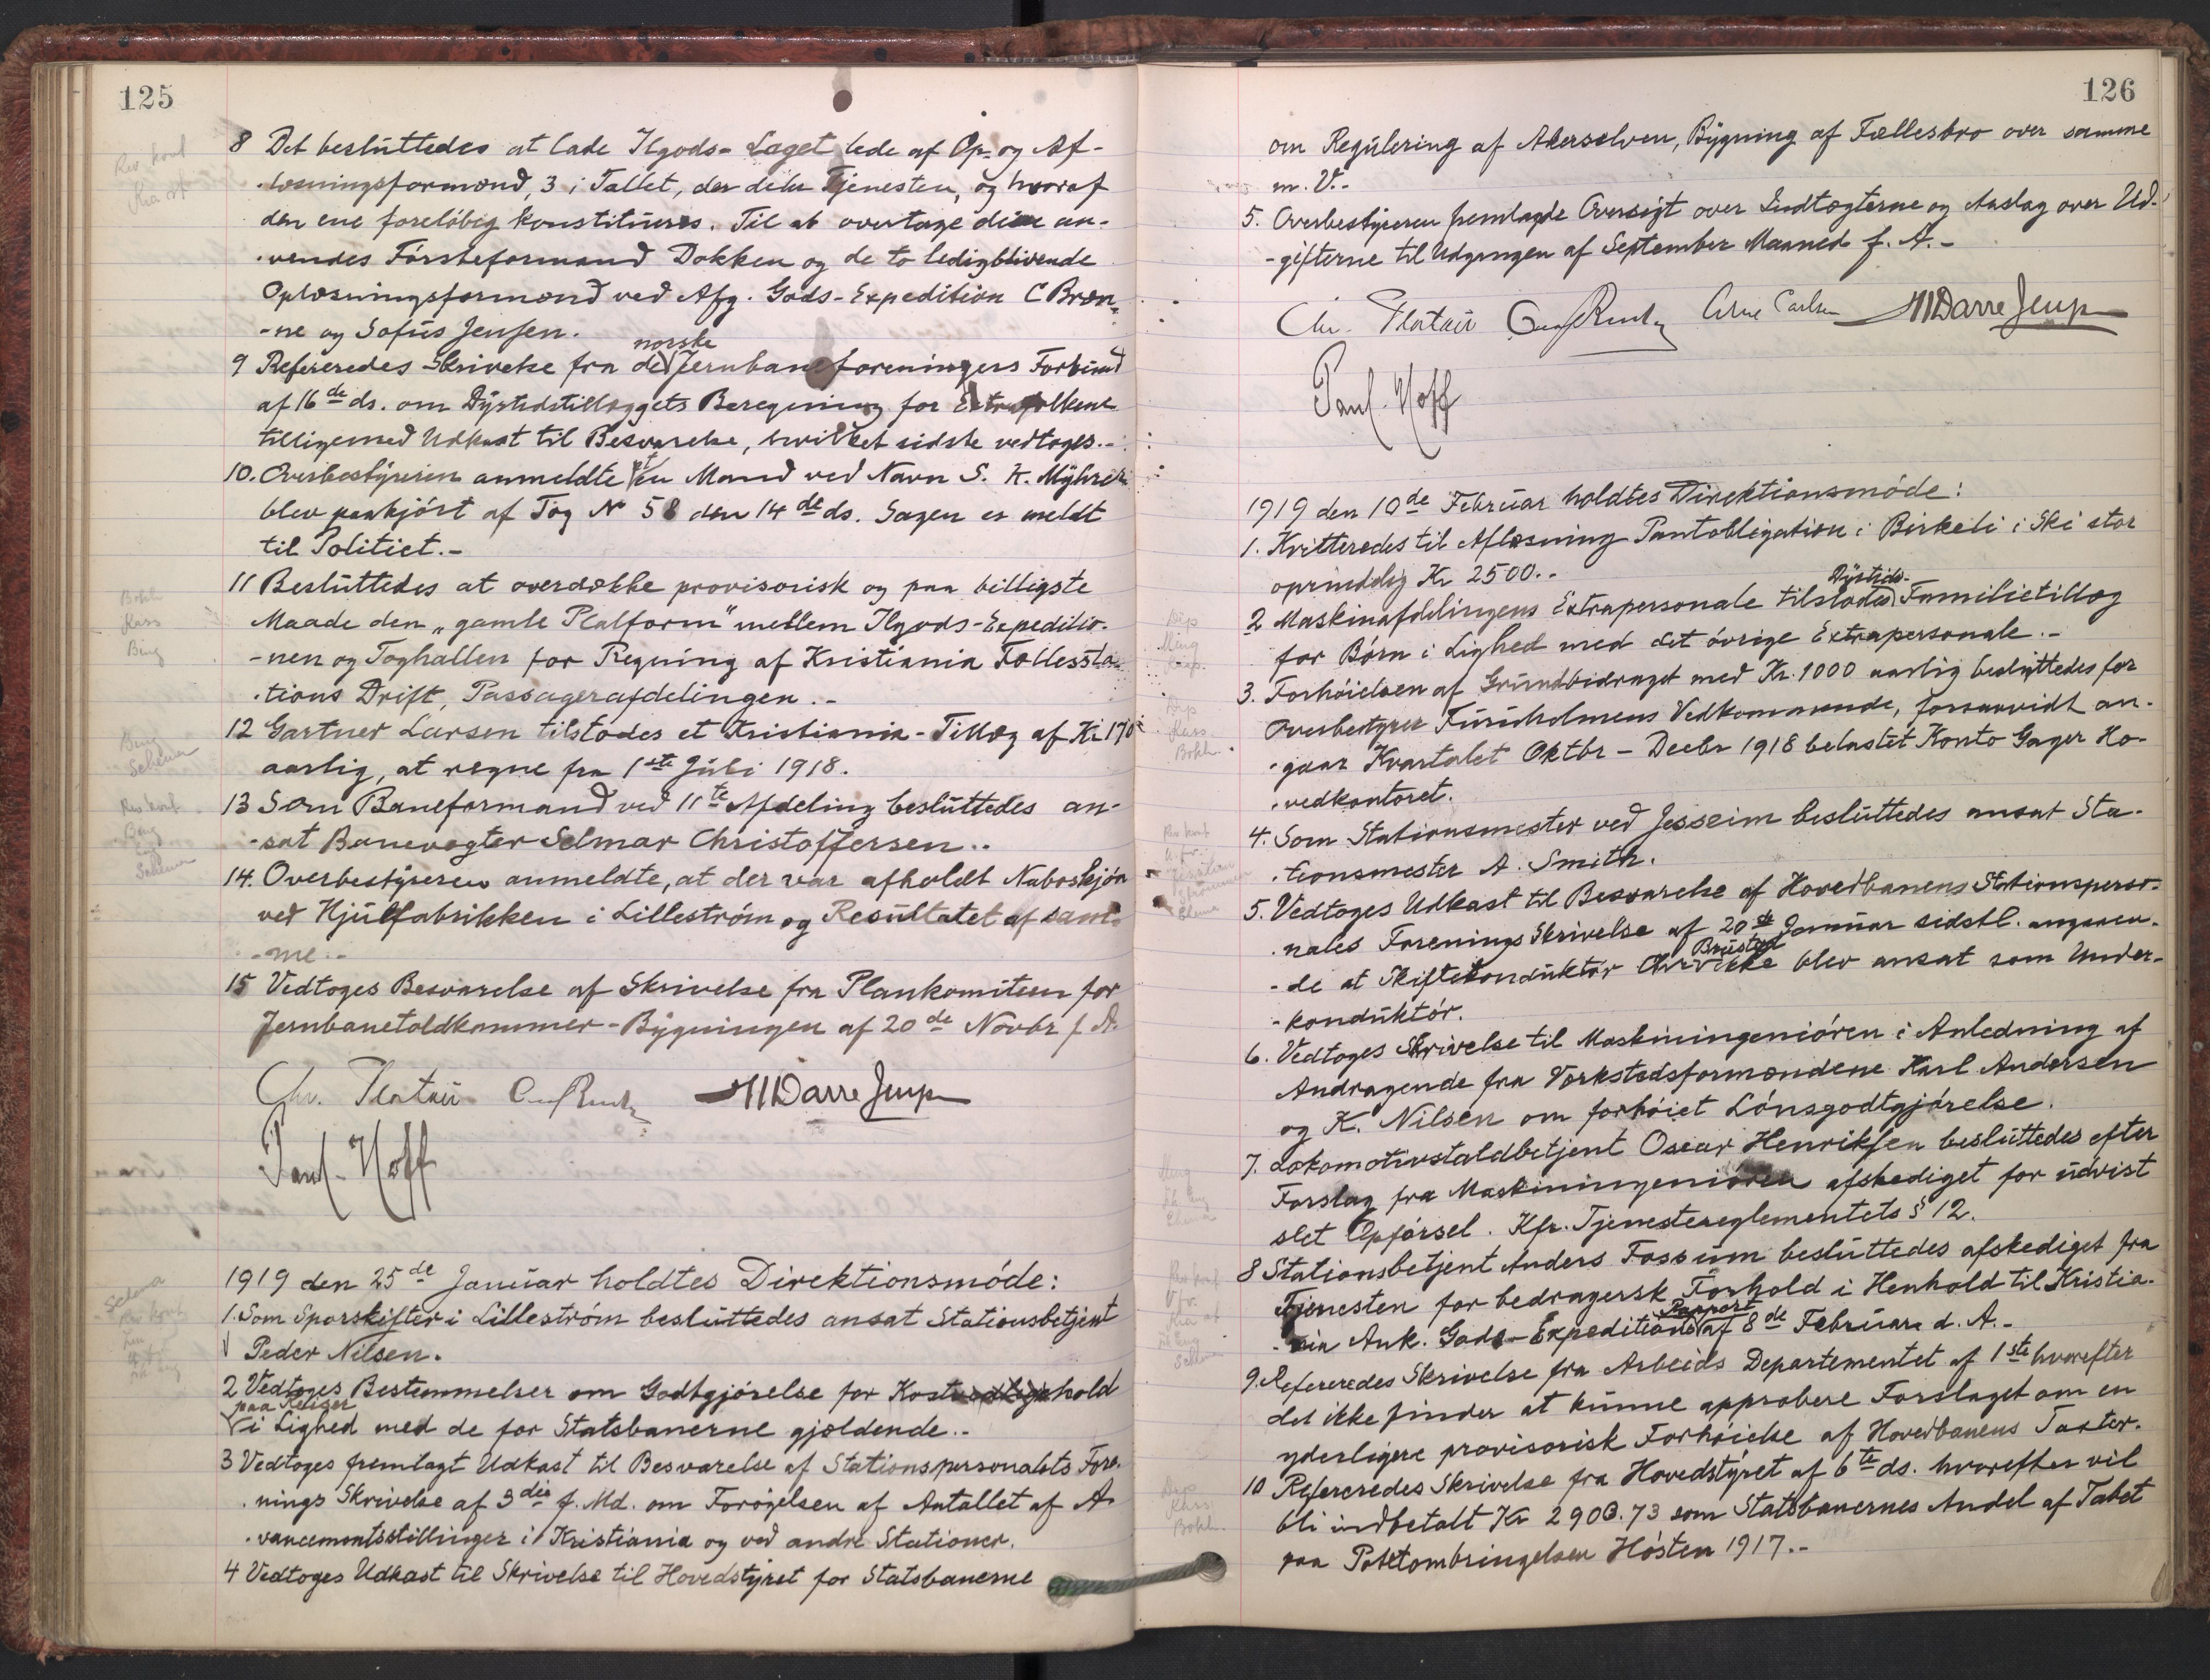 125
8 Det besluttedes at lade Ilgods-Laget lede af Op- og Af-
løsningsformænd, 3 i Tallet, der deler Tjenesten, og hvoraf
den ene foreløbig konstitueres. Til at overtage denne an-
vendes Førsteformand Dokken og de to ledigblivende
Oplæsningsformænd ved Afg. Gods-Expedition C Bræn-
-ne og Sofus Jensen.
9 Refereredes Skrivelse fra de norske Jernbaneforeningers Forbund
af 16de ds. om Dyrtidstillæggets Beregning for Extrafolkene
tilligemed Udkast til Besvarelse, hvilket sidste vedtoges.-
10. Overbestyreren anmeldte at en Mand ved Navn S. K. Myhrer
blev paakjørt af Tog No 58 den 14de ds. Sagen er meldt
til Politiet.-
11 Besluttedes at overdække provisorisk og paa billigste
Maade den „gamle Platform" mellem Ilgods-Expeditio-
-nen og Toghallen for Regning af Kristiania Fællessta-
tions Drift, Passagerafdelingen.-
12 Gartner Larsen tilstodes et Kristiania-Tillæg af Kr 170
aarlig, at regne fra 1ste Juli 1918.
13 Som Baneformand ved 11te Afdeling besluttedes an-
-sat Banevogter Selmar Christoffersen..
14. Overbestyreren anmeldte, at der var afholdt Naboskjøn
ved Hjulfabrikken i Lillestrøm og Resultatet af sam-
-me.-
15 Vedtoges Besvarelse af Skrivelse fra Plankomiteen for
Jernbanetoldkammer-Bygningen af 20de Novbr f. A.
Chr. Platou MDarre Jenp
Paul. Hoff
1919 den 25de Januar holdtes Direktionsmøde:
1. Som Sporskifter i Lillestrøm besluttedes ansat Stationsbetjent
Peder Nilsen.
2 Vedtoges Bestemmelser om Godtgjørelse for Kosthold
paa Reiser i Lighed med de for Statsbanerne gjældende.-
3 Vedtoges fremlagt Udkast til Besvarelse af Stationspersonalets Fore-
nings Skrivelse af 3die f. Md. om Forøgelsen af Antallet af A-
vancementsstillinger i Kristiania og ved andre Stationer.
4 Vedtoges Udkast til Skrivelse til Hovedstyret for Statsbanerne
126
om Regulering af Akerselven, Bygning af Fællesbro over samme
m. V.-
5. Overbestyreren fremlagde Oversigt over Indtægterne og Anslag over Ud-
-gifterne til Udgangen af September Maaned f. A.-
Chr. Platou Arne Carlsen MDarre Jenp
Paul. Hoff
1919 den 10de Februar holdtes Direktionsmøde:
1. Kvitteredes til Aflæsning Pantobligation i Birkeli i Ski stor
oprindelig Kr 2500.-
2 Maskinafdelingens Extrapersonale tilstodes Dyrtids- Familietillæg
for Børn i Lighed med det øvrige Extrapersonale.-
3. Forhøielsen af Grundbidraget med Kr. 1000 aarlig besluttedes for
Overbestyrer Furuholmens Vedkommende, forsaavidt an-
-gaar Kvartalet Oktbr - Decbr 1918 belastet Konto Gager Ho-
vedkontoret.
4. Som Stationsmester ved Jessheim besluttedes ansat Sta-
tionsmester A. Smith.
5. Vedtoges Udkast til Besvarelse af Hovedbanens Stationsperso-
nales Forenings Skrivelse af 20de Januar sidstl. angaaen-
-de at Skiftekonduktør Brustad ikke blev ansat som Under-
-konduktør.
6. Vedtoges Skrivelse til Maskiningeniøren i Anledning af
Andragende fra Værkstedsformændene Karl Andersen
og K. Nilsen om forhøiet Lønsgodtgjørelse.
7. Lokomotivstaldbetjent Oscar Henriksen besluttedes efter
Forslag fra Maskiningeniøren afskediget for udvist
slet Opførsel. Kfr. Tjenestereglementets § 12.
8 Stationsbetjent Anders Fossum besluttedes afskediget fra
Tjenesten for bedragersk Forhold i Henhold til Kristia-
-nia Ank. Gods-Expeditions Rapport af 8de Februar d. A.-
9. Refereredes Skrivelse fra Arbeids Departementet af 1ste hvorefter
det ikke finder at kunne approbere Forslaget om en
yderligere provisorisk Forhøielse af Hovedbanens Taxter.
10 Refereredes Skrivelse fra Hovedstyret af 6te ds. hvorefter vil
bli indbetalt Kr 2903.73 som Statsbanernes Andel af Tabet
paa Potetombringelsen Høsten 1917.-